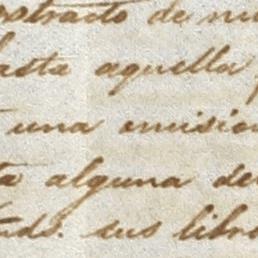 ostracto de nu
hasta aquella
una emision
ta alguna de
sus libro